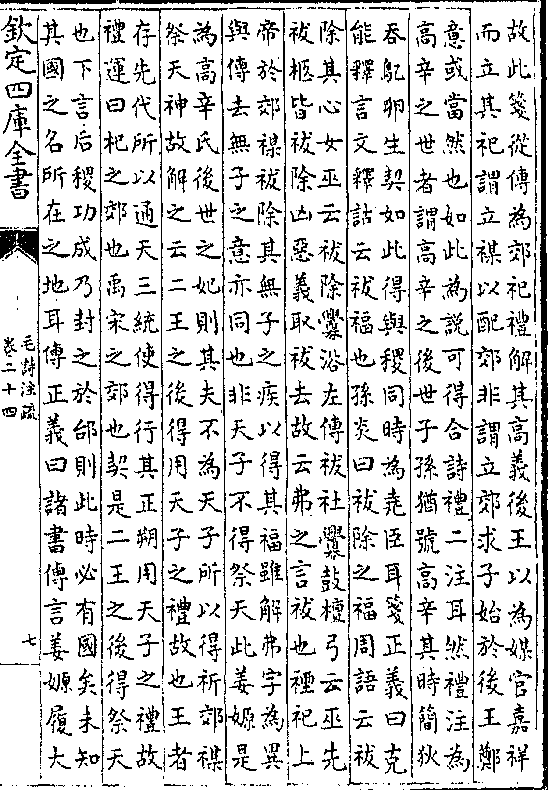 故此箋從傳為郊祀禮解其高義後王以為媒官嘉祥
而立其祀謂立禖以配郊非謂立郊求子始於後王鄭
意或當然也如此為說可得合詩禮二注耳然禮注為
高辛之世者謂高辛之後世子孫猶號高辛其時簡狄
吞鳦卵生契如此得與稷同時為堯臣耳箋正義曰克
能釋言文釋詁云祓福也孫炎曰祓除之福周語云祓
除其心女巫云祓除釁浴左傳祓社釁鼓檀弓云巫先
祓柩皆祓除凶惡義取祓去故云弗之言祓也禋祀上
帝於郊禖祓除其無子之疾以得其福雖解弗字為異
與傳去無子之意亦同也非天子不得祭天此姜嫄是
為高辛氏後世之妃則其夫不為天子所以得祈郊禖
祭天神故解之云二王之後得用天子之禮故也王者
存先代所以通天三統使得行其正朔用天子之禮故
禮運曰杞之郊也禹宋之郊也契是二王之後得祭天
也下言后稷功成乃封之於邰則此時必有國矣未知
其國之名所在之地耳傳正義曰諸書傳言姜嫄履大
欽定四庫全書
毛詩注疏
卷二十四
七